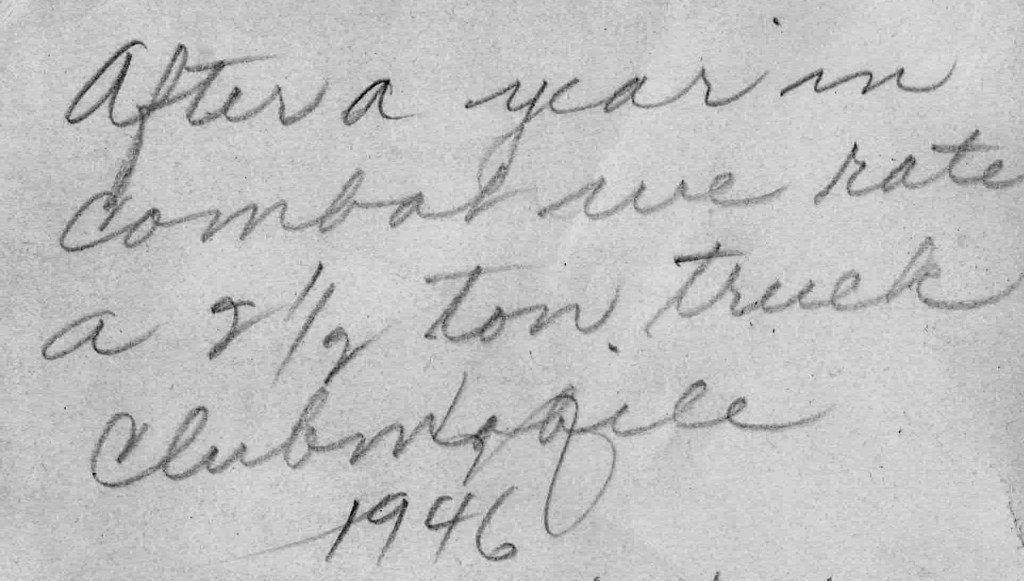 After a year in
combat we rate
a 2 1/2 ton truck
Clubmobile
1946